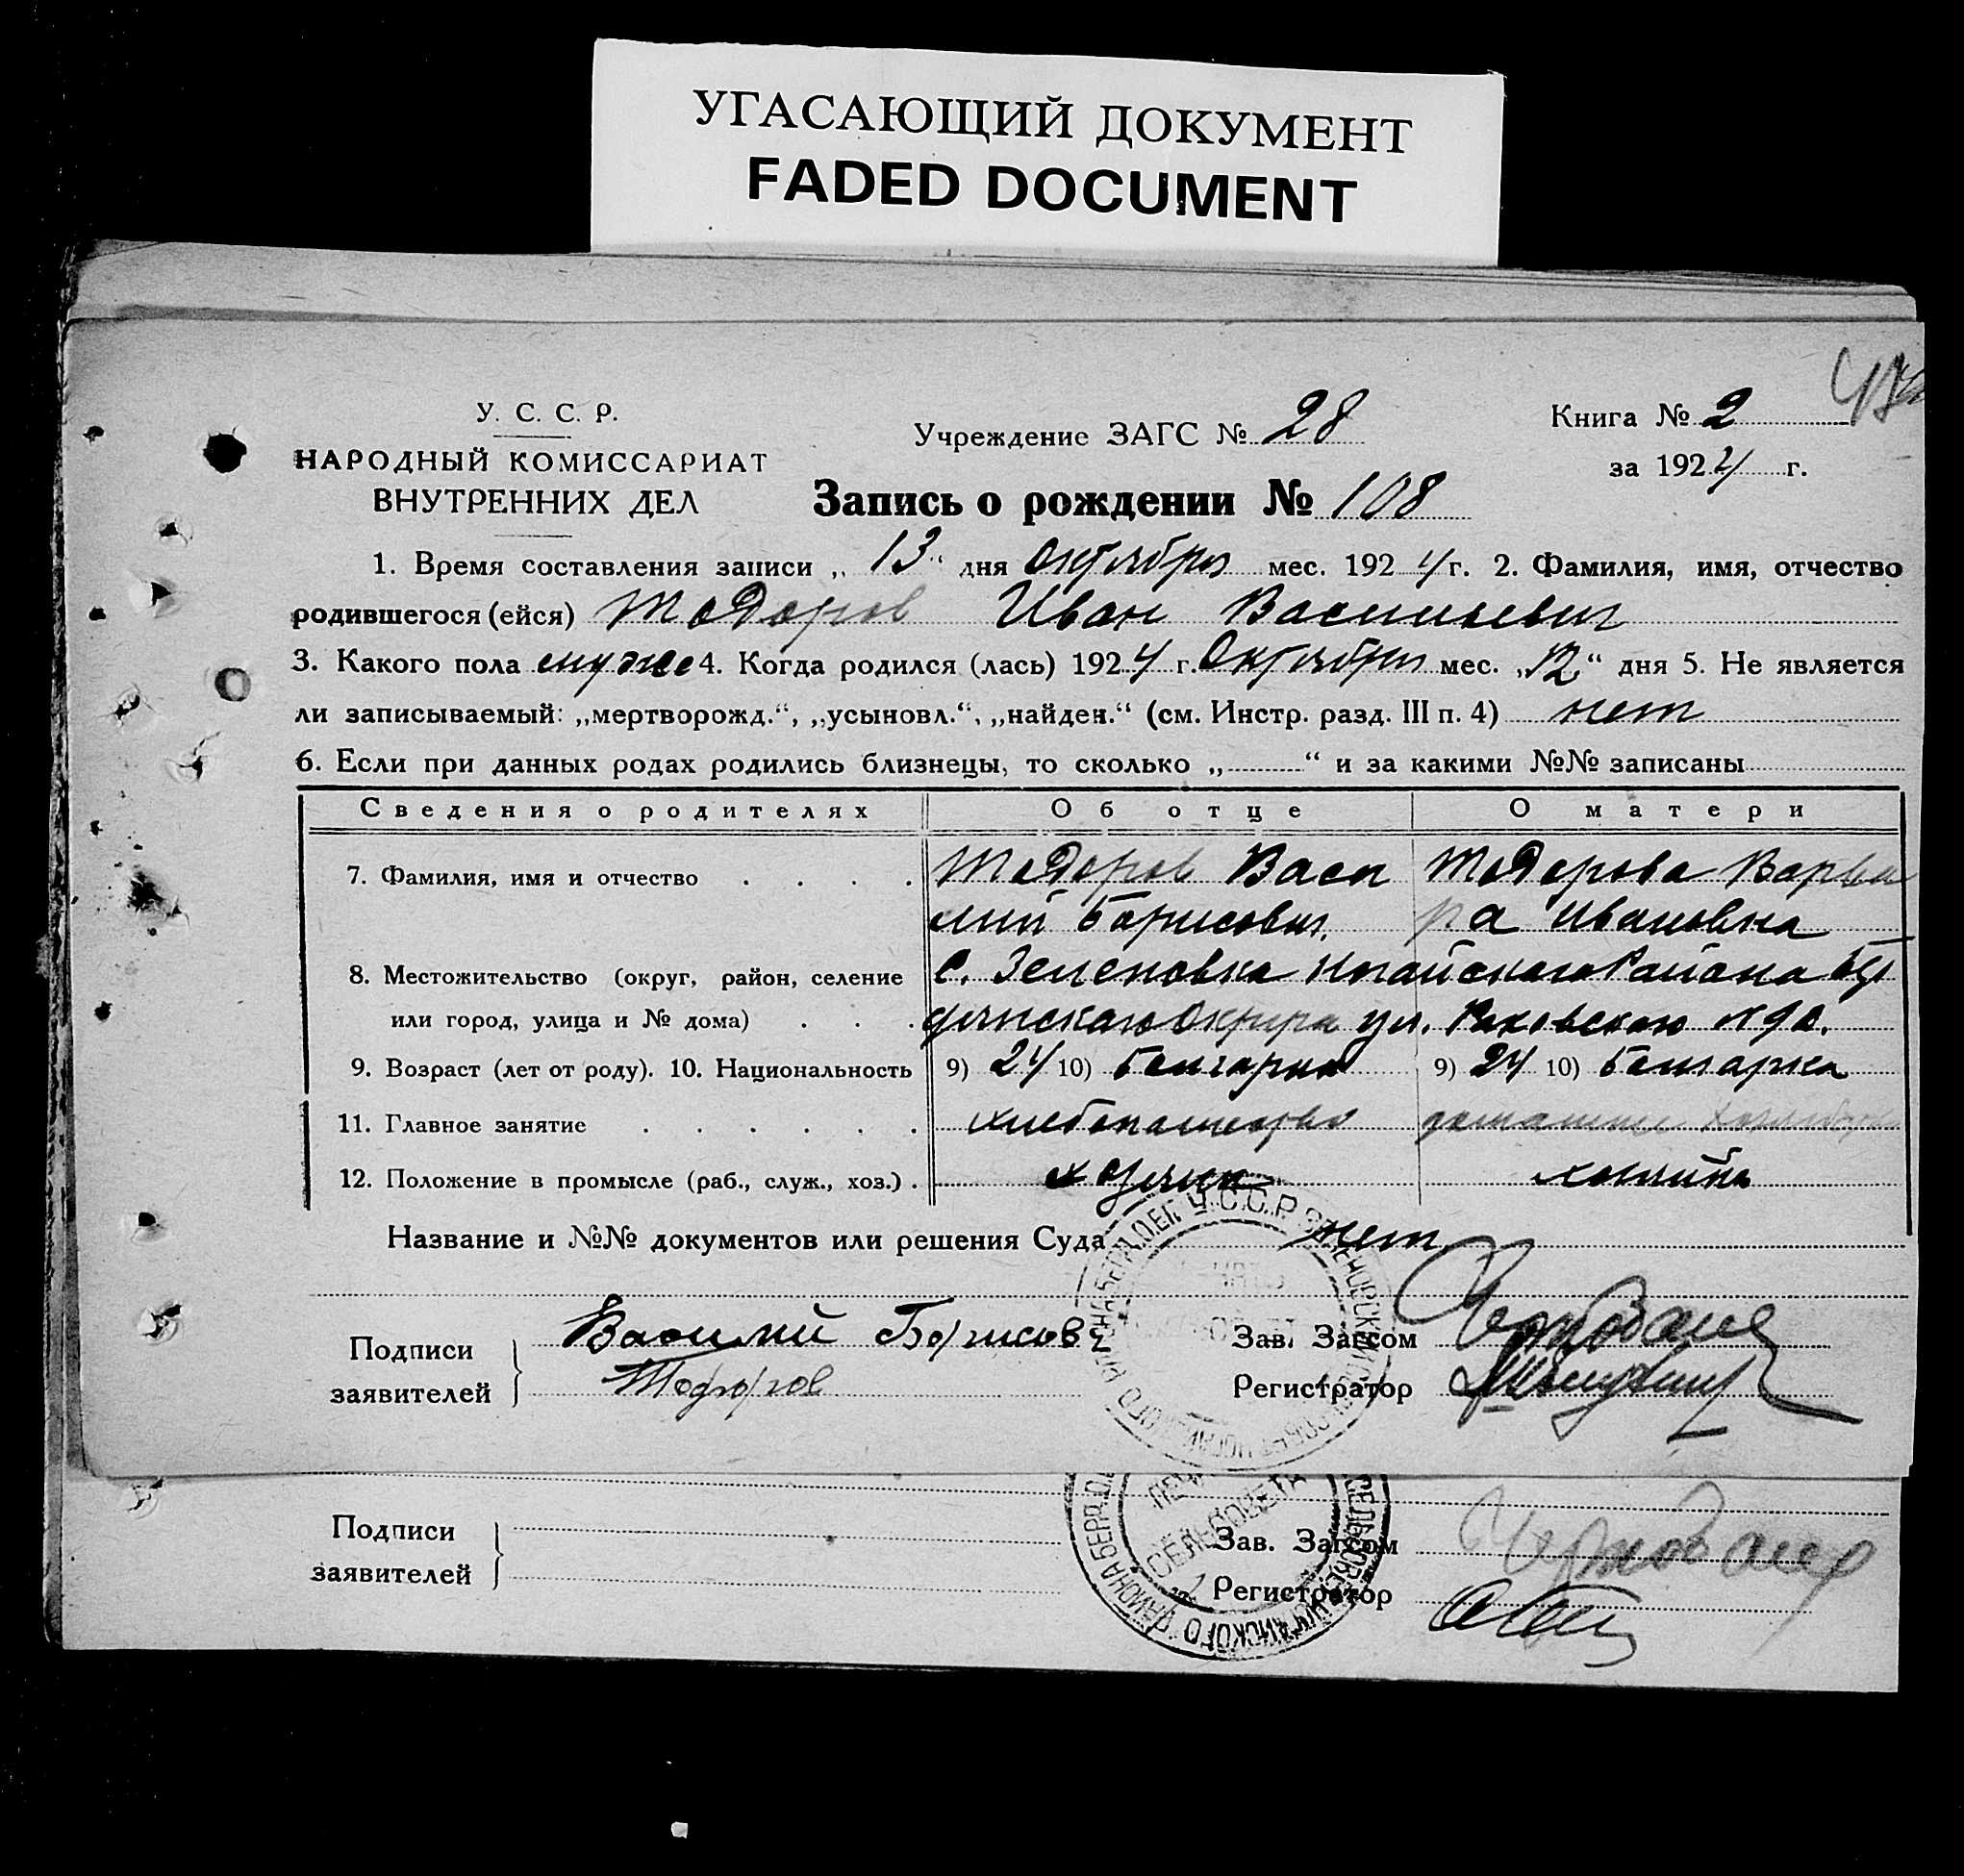 УГАСАЮЩИЙ ДОКУМЕНТ
FADED DOCUMENT
У. С. С. Р.
НАРОДНЫЙ КОМИССАРИАТ
ВНУТРЕННИХ ДЕЛ
Учреждение ЗАГС № 28
Книга № 2
за 1924 г.
Запись о рождении № 108
1. Время составления записи „ 13 “ дня Октября мес. 1924 г. 2. Фамилия, имя, отчество
родившегося (ейся) Тодоров Иван Васильевич
3. Какого пола муже 4. Когда родился (лась) 1924 г. Октября мес. „12“ дня 5. Не является
ли записываемый: „мертворожд.“, „усыновл.“, „найден.“ (см. Инстр. разд. III п. 4) нет
6. Если при данных родах родились близнецы, то сколько „ “ и за какими №№ записаны
Сведения о родителях Об отце О матери
7. Фамилия, имя и отчество Тодоров Васи Тодорова Варва
лий Борисович. ра Ивановна
8. Местожительство (округ, район, селение с. Зеленовка Ногайского Района
или город, улица и № дома) Округа ул. Раковского
9. Возраст (лет от роду). 10. Национальность 9) 24 10) Болгарин 9) 24 10) Болгарка
11. Главное занятие хлебопашество домашнее
12. Положение в промысле (раб., служ., хоз.)
Название и №№ документов или решения Суда нет
Подписи
заявителей
Василий Борисов
Тодоров
Зав. Загсом
Регистратор
Подписи
заявителей
ПЕЧАТЬ
СЕЛЬСОВЕТА
Зав. Загсом
Регистратор